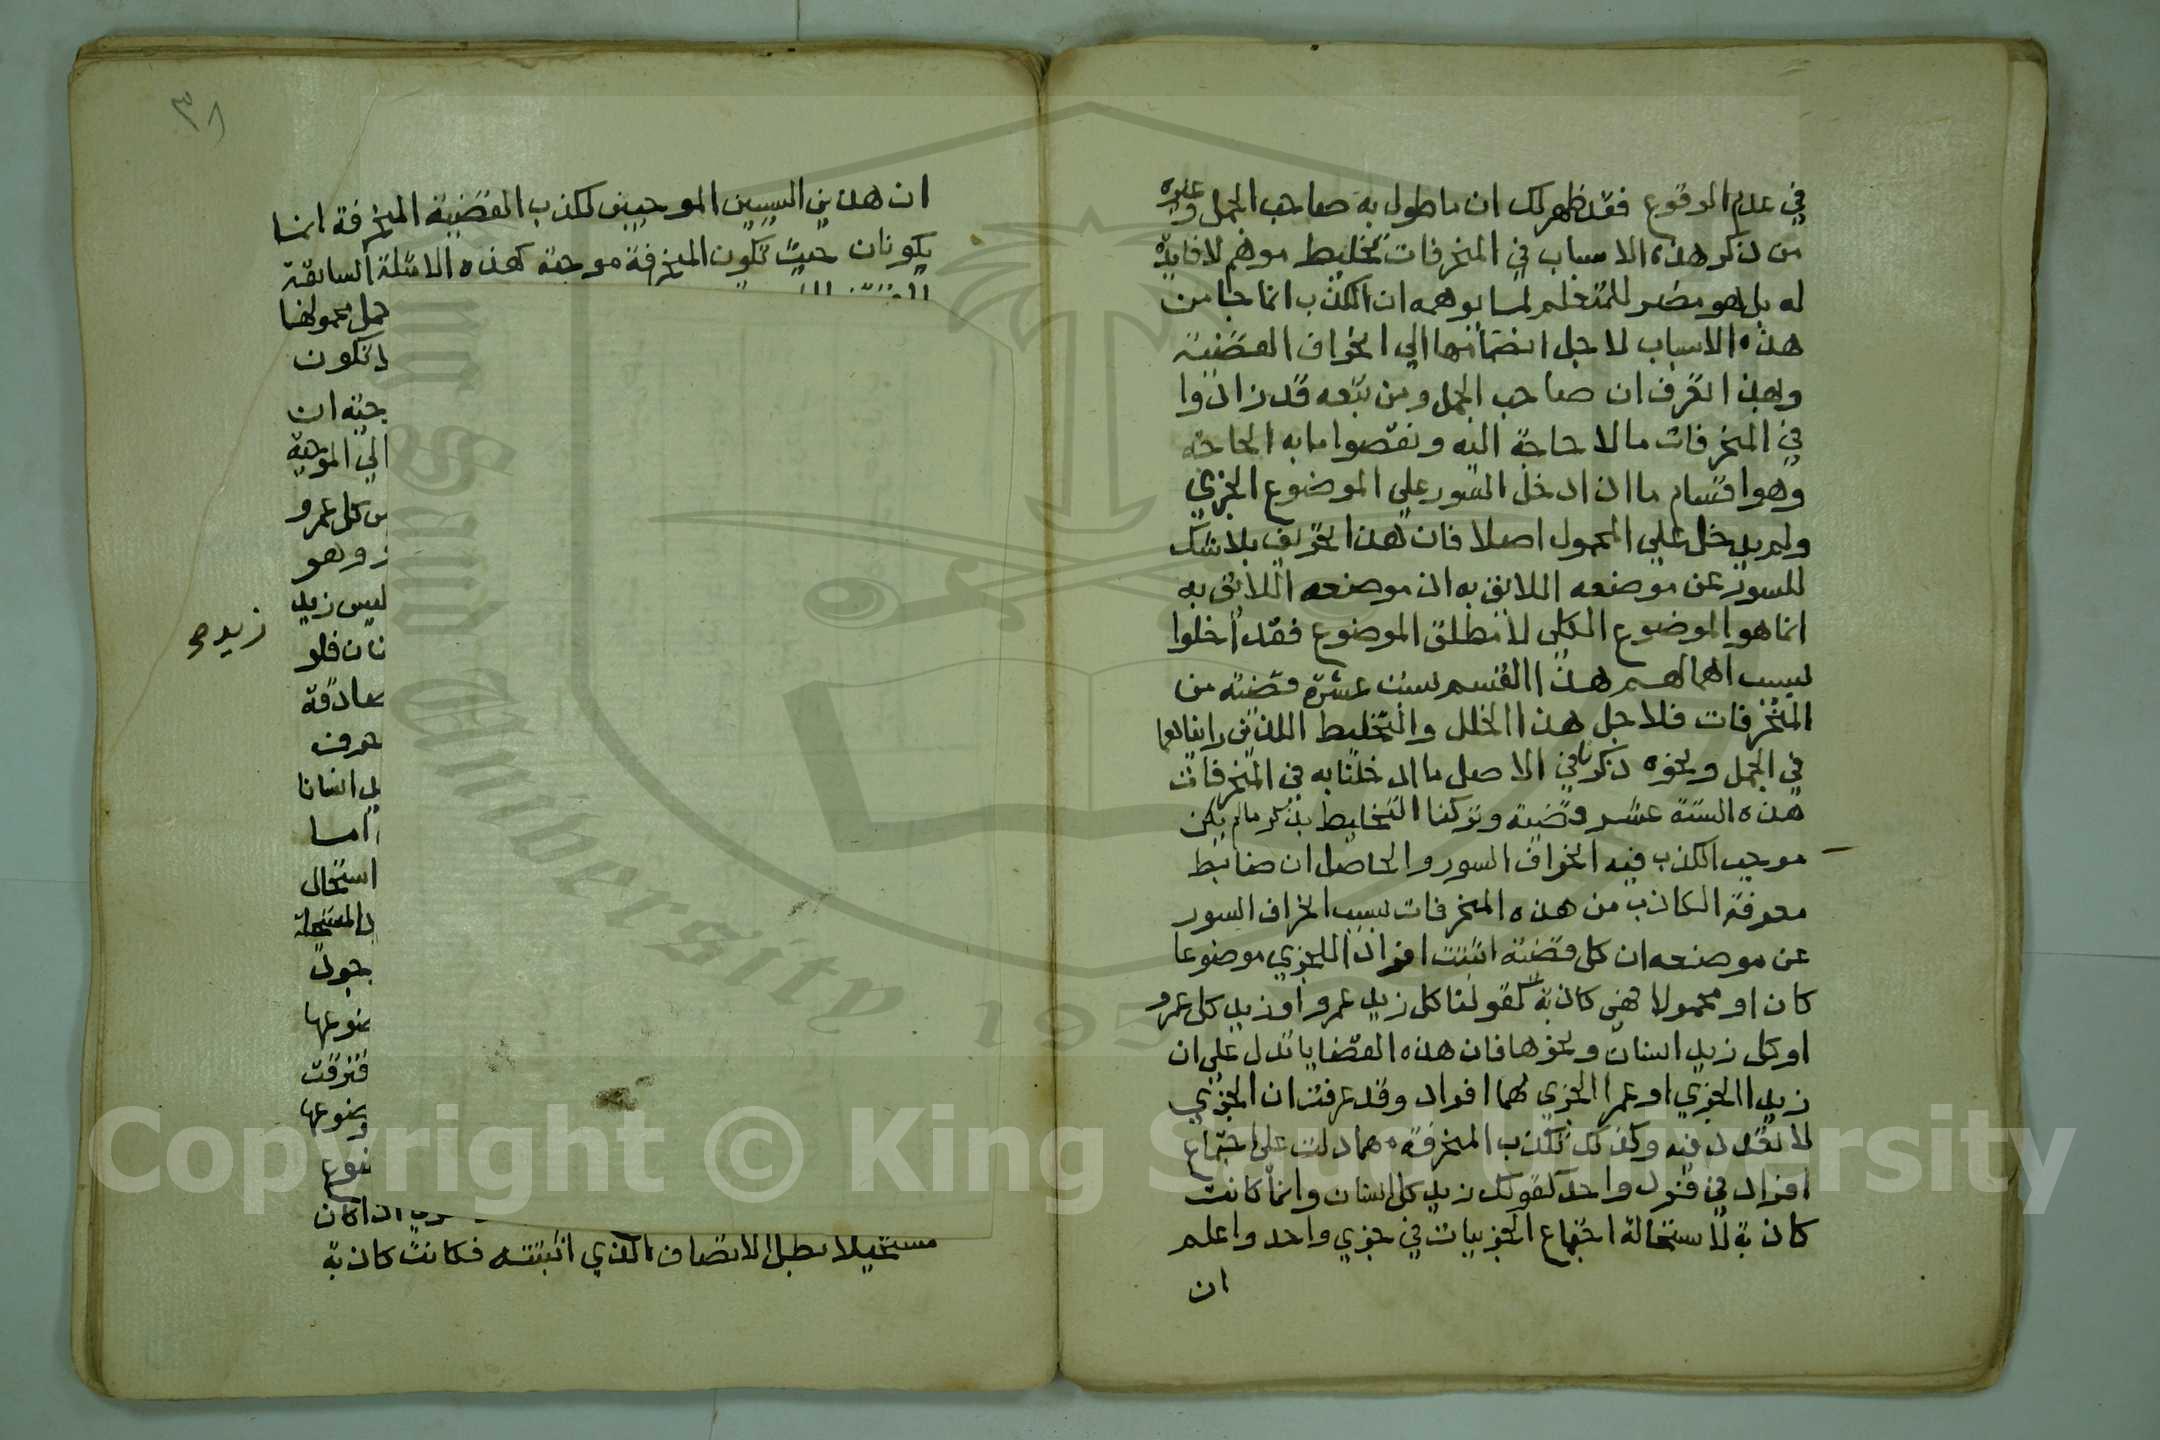 في عدم الوقوع فقد ظهر لك ان ما طول به صاحب الجمل وغيره
من ذكر هذه الاسباب في المنحرفات تخليط موهم لا فايدة
له بل هو مضر للمتعلم لما يوهمه ان الكذب انما جا من
هذه الاسباب لا جل انضمامها الي انحراف القضية
وبهذا تعرف ان صاحب الجمل ومن تبعه قد زادوا
في المنحرفات ما لا حاجة اليه ونقصوا ما به الحاجة
وهو اقسام ما اذا دخل السور علي الموضوع الجزي
ولم يدخل علي المحمول اصلا فان هذا تحريف بلا شك
للسور عن موضعه اللائق به اذ موضعه اللائق به
انما هو الموضوع الكلي لا مطلق الموضوع فقد اخلوا
بسبب اهمالهم هذا القسم بست عشرة قضية من
المنحرفات فلاجل هذا الخلل والتخليط اللذين
في الجمل ونحوه ذكرنا في الاصل ما ادخلنا به في المنحرفات
هذه الستة عشر قضية وتركنا التخليط بذكر ما لم يكن
موجب الكذب فيه انحراف السور والحاصل ان ضابط
معرفة الكاذب من هذه المنحرفات بسبب انحراف السور
عن موضعه ان كل قضية اثبتت افرادا للجزي موضوعا
كان او محمولا فهي كاذبة كقولنا كل زيد عمرو او زيد كل عمرو
او كل زيد انسان ونحوها فان هذه القضايا تدل علي ان
زيدا الجزي او عمرا الجزي لهما افراد وقد عرفت ان الجزي
لا تعدد فيه وكذلك تكذب المنحرفة مهما دلت علي اجتماع
افراد في فرد واحد كقولك زيد كل انسان وانما كانت
كاذبة لاستحالة اجتماع الجزييات في جزي واحد واعلم
ان
٣٨
ان هذين السببين الموجبين لكذب القضية المنحرفة انما
يكونان حيث تكون المنحرفة موجبة كهذه الامثلة السابقة
حمل محمولها
تكون
جبة ان
الي الموجبة
س كل عمرو
وهو
ليس زيد
زيد صح
فلو
صادقة
حرف
يد انسانا
اما
استحال
المستحيلة
جود
ضوعها
قترقت
ضوعها
ضوع
اذا كان
مستحيلا بطل الاتصاف الذي اثبتته فكانت كاذبة